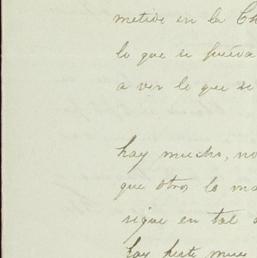 metido en la Ch
lo que se
a ver lo que se
hay mucho, no
que otros lo ma
sigue en tal
hay muy